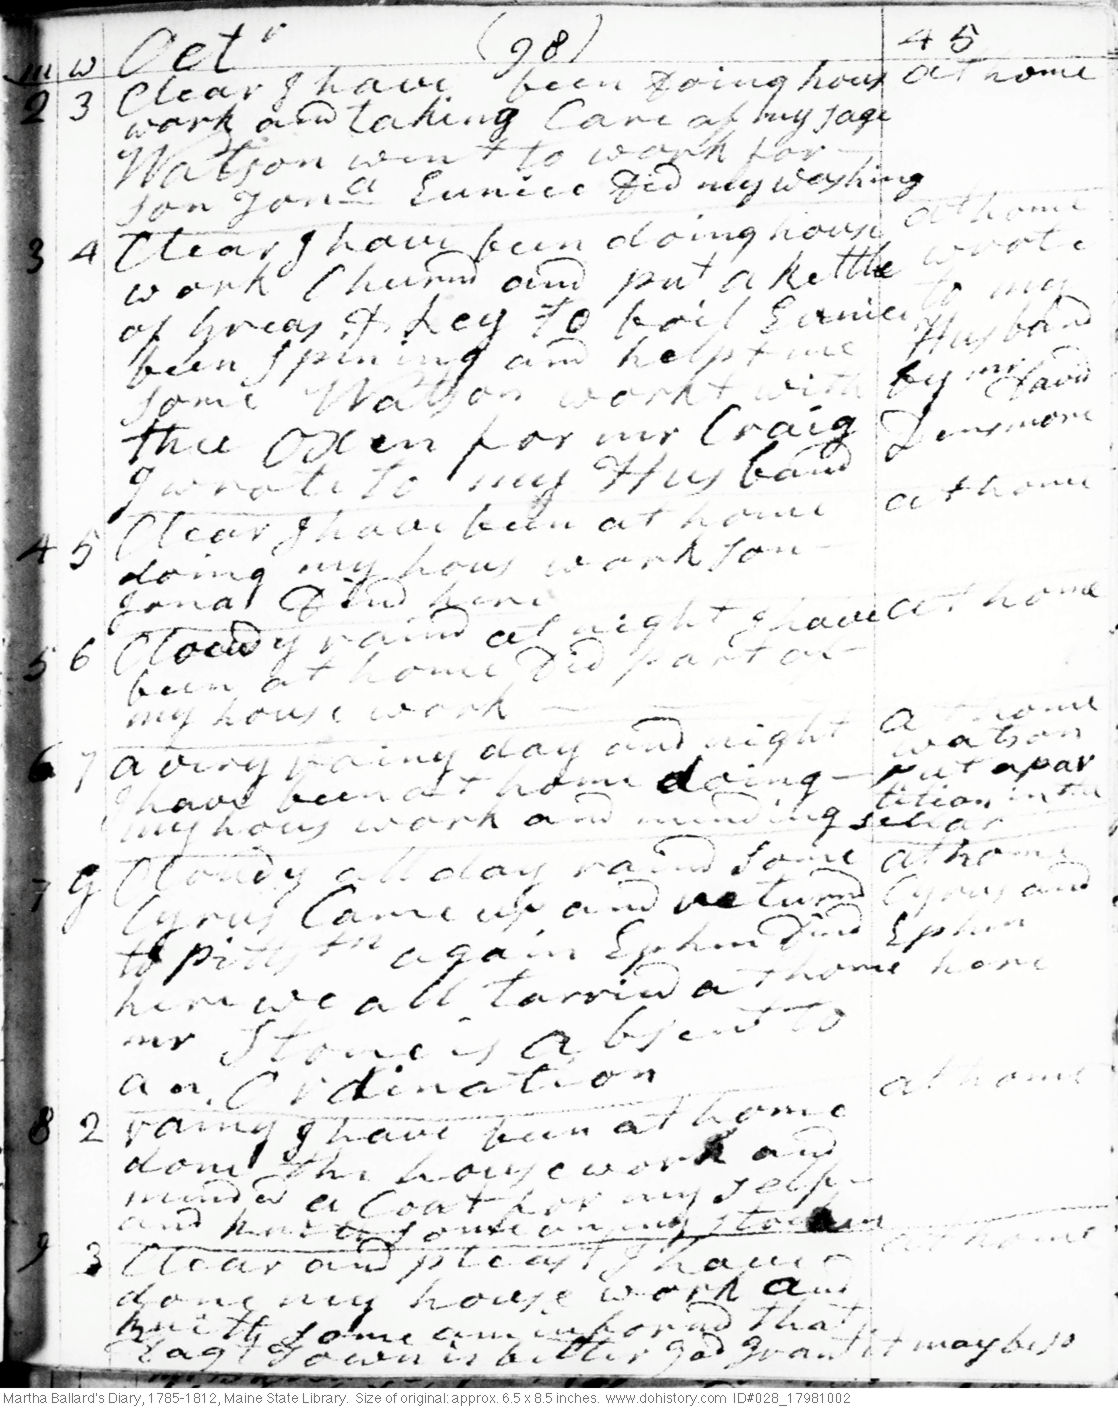 m w Octr (98) 45
2 3 Clear I have been Doing hous at home
work and taking Care of my Sage
Watson went to work for
Son Jona Eunice Did my washing
3 4 Clear I have been doing hous at home
work Churnd and put a kettle wrote
of Greas & Ley To boil Eunice to my
been Spining and helpt me Husband
Some Watson workt with by mr David
thee Oxen for mr Craig Densmore
I wrote to my Husband
4 5 Clear I have been at home at home
doing my hous work Son
Jona Dind here
5 6 Cloudy raind at night I have at home
been at home Did part of
my house work
6 7 a very rainy day and night at home
I have been at home doing Watson
my hous work and minding put apar
tition in the
Sellar
7 G Cloudy all day raind Some at home
Cyrus Came up and returnd Cyrus and
to Pittstn again Ephm Dind Ephm
here we all tarried at home here
mr Stone is absent to
an Ordination
8 2 rainy I have been at home at home
done the house work and
mended a Coat for my Self
and knit some on my
9 3 Clear and pleast I have at home
done my house work and
knitt Some am informd that
Town is better God Grant it may be so
Martha Ballard's Diary, 1785-1812, Maine State Library. Size of original: approx. 6.5 x 8.5 inches. www.dohistory.com ID#028_17981002